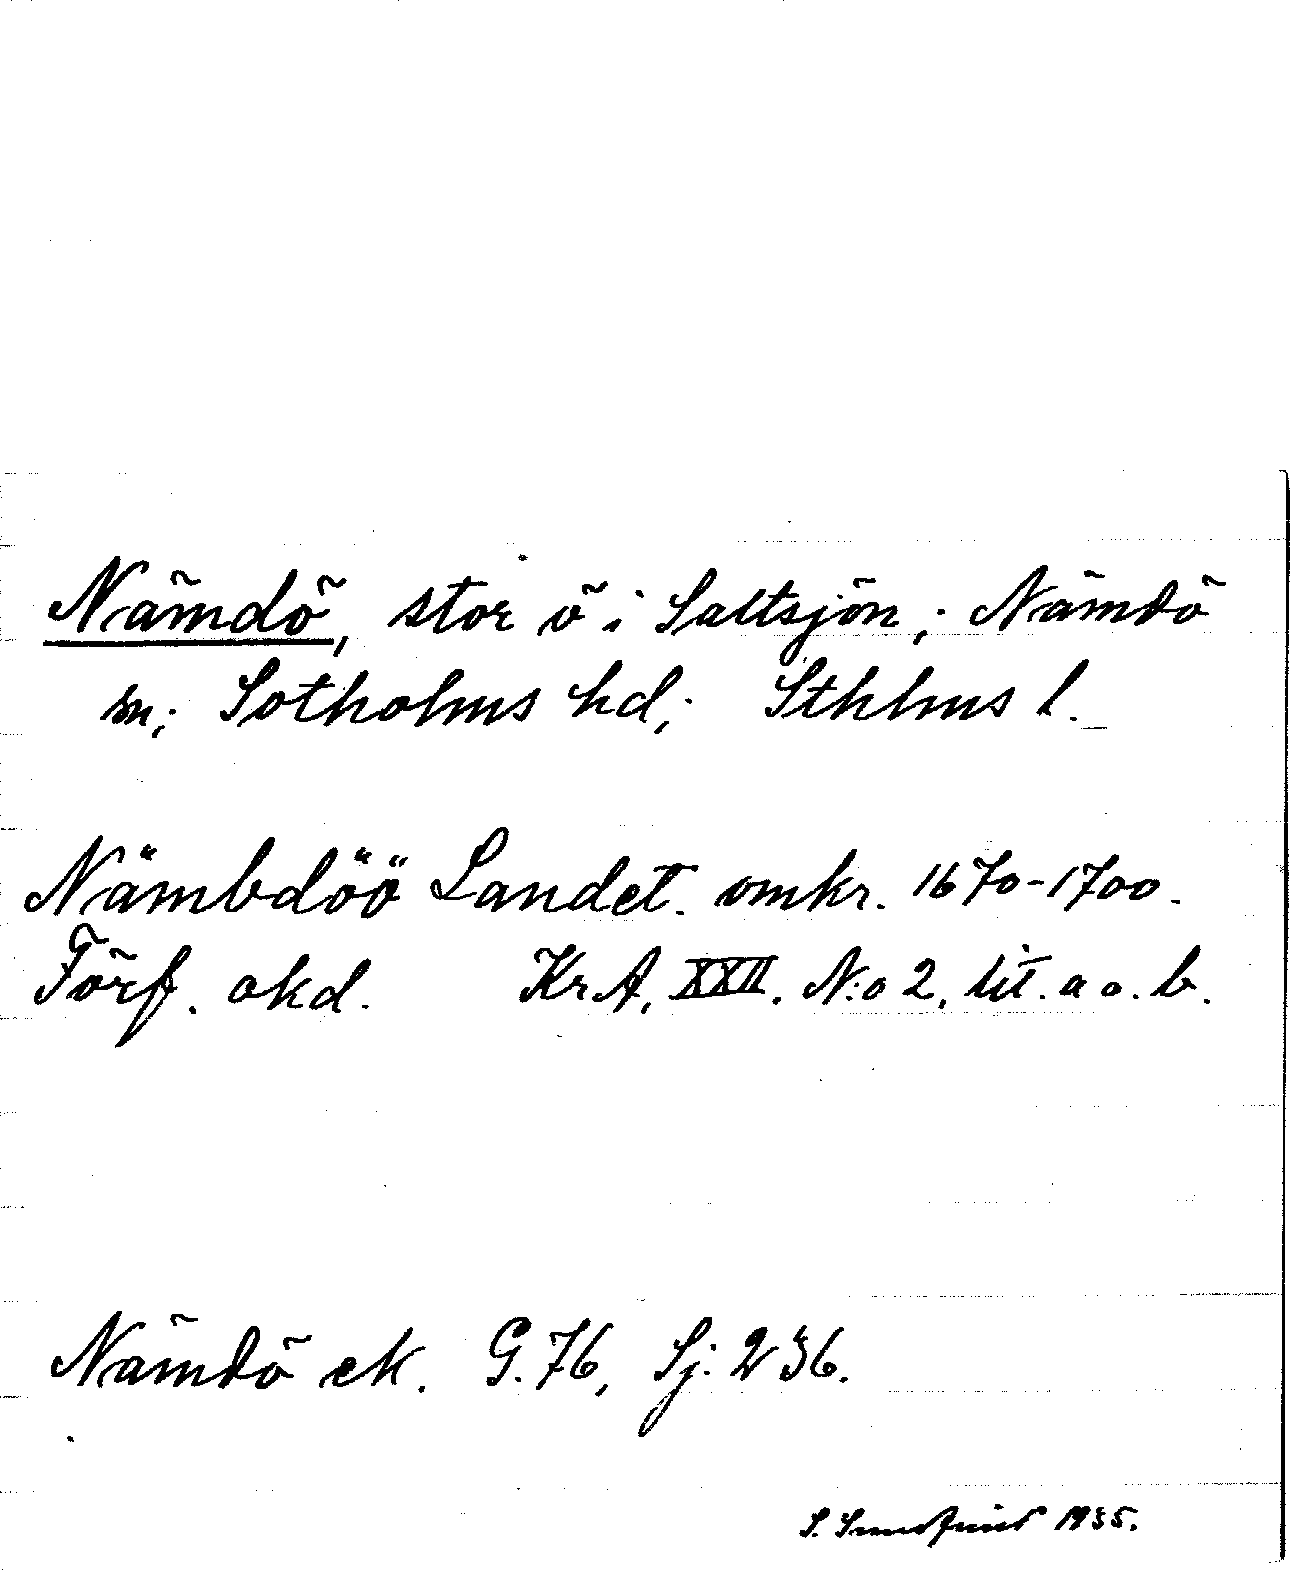 Nämdö, stor ö i Saltsjön; Nämdö
sn; Sotholms hd; Sthlms l.
Nämbdöö Landet. omkr. 1670-1700.
Förf. okd. Kr A, XXII. N:o 2, lit. a o. b.
Nämdö ek. G. 76, Sj: 236.
S. Sundquist 1935.